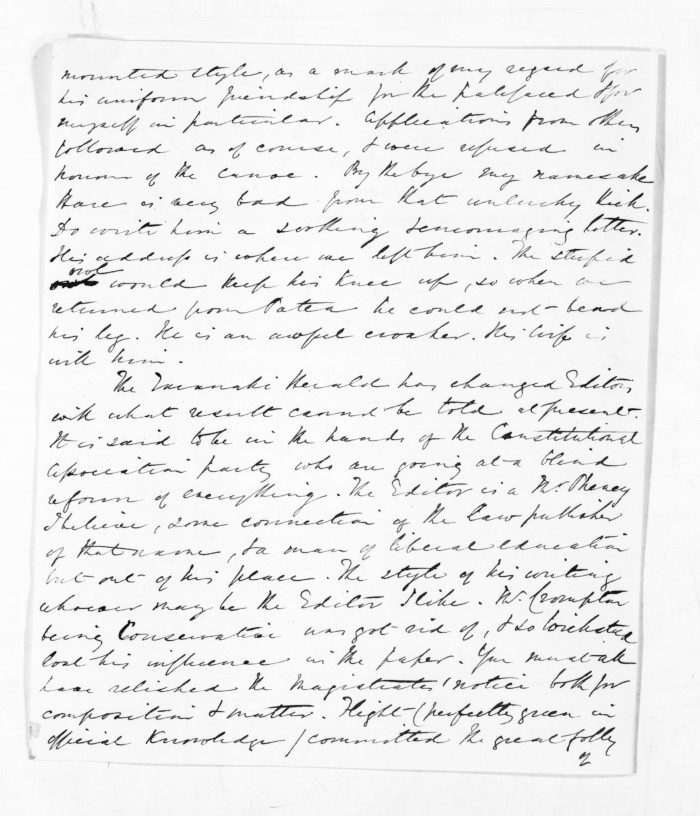 mounted style, as a mark of my regard for
his uniform friendship for the palefaced & for
myself in particular. Applications from others
followed as of course, & were refused in
honour of the canoe. By the bye my namesake
is very bad from that unlucky kick.
Do write him a soothing & encouraging letter.
His address is where we left him. The stupid
owl would keep his knee up, so when we
returned from Patea he could not bend
his leg. He is an awful croaker. His wife is
with him.
The Taranaki Herald has changed Editors
with what result cannot be told at present.
It is said to be in the hands of the Constitutional
Association party who are going at a blind
reform of everything. The Editor is a Mr. Pheney
I believe, some connection of the law publisher
of that name, & a man of liberal education
but out of his place. The style of his writing
whoever may be the Editor I like. Mr. Crompton
being Conservative was got rid of, & so Wicksteed
lost his influence in the paper. You must all
have relished the Magistrates' notice both for
composition & matter. Flight (perfectly green in
official knowledge) committed the great folly
of